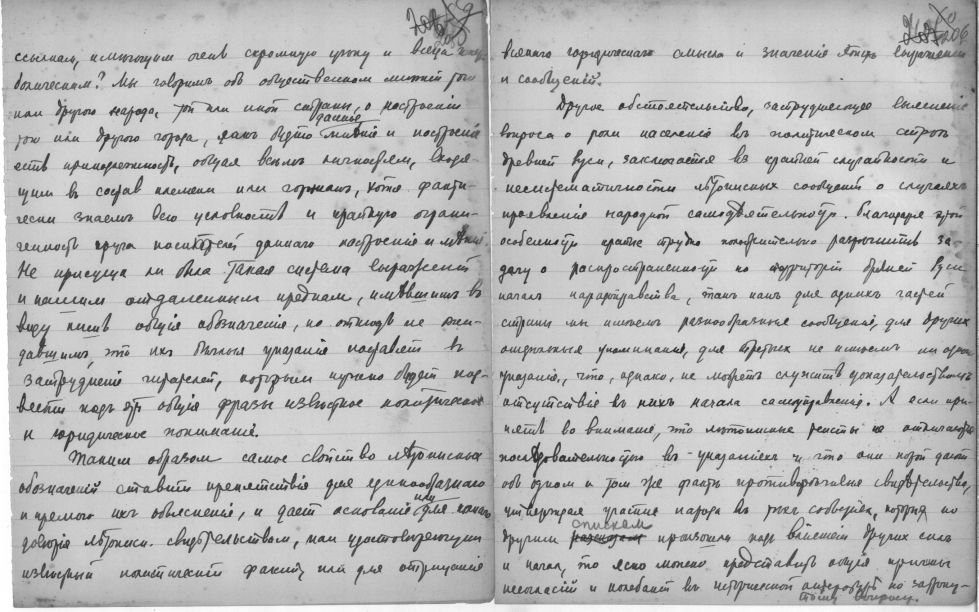 ссылкам, имеющим очень скромную цѣну и
болическим? Мы говоримъ объ общественномъ мнѣніи того
или другого народа, той или иной страны, о настроеніи
того или другого города, какъ будто данные мнѣніе и настроеніе
есть принадлежность, общая всѣмъ личностямъ, входя-
щим въ состав племени или горожанъ, хотя факти-
чески знаемъ всю условность и крайнюю ограни-
ченность круга носителей даннаго настроенія и мнѣнія.
Не присуща ли была такая система выраженій
и нашим отдаленным предкам, имѣвшимъ въ
виду лишь общія обозначенія, но отнюдь не ожи-
давшимъ, что ихъ бѣглыя указанія поставятъ въ
затрудненіе читателей, которым нужно будет под-
вести подъ эти общія фразы извѣстное политическое
и юридическое пониманіе.
Таким образом самое свойство лѣтописных
обозначеній ставитъ препятствія для единообразнаго
и прямого ихъ объясненія, и дает основаніе или для
довѣрія лѣтописн. свидѣтельствам, как удостовѣряющим
извѣстный политическій фактъ, или для отрицанія
206
всякаго юридическаго смысла и значенія этихъ выраженій
и сообщеній.
Другое обстоятельство, затрудняющее выясненіе
вопроса о роли населенія въ политическом строѣ
древней Руси, заключается въ крайней случайности и
несистематичности лѣтописных сообщеній о случаяхъ
проявленія народной самодѣятельности. Благодаря этой
особенности крайне трудно положительно разрѣшить за-
дачу о распространенности по территоріи древней Руси
началъ народоправства, такъ какъ для однихъ частей
страны мы имѣемъ разнообразныя сообщенія, для другихъ
отдѣльныя упоминанія, для третьих не имѣем ни одного
указанія, что, однако, не можетъ служить доказательством
отсутствія въ нихъ начала самоуправленія. А если при-
нять во вниманіе, что лѣтописные тексты не отличаются
послѣдовательностью въ указаніяхъ и что они порой дают
объ одном и том же фактѣ противорѣчивыя свидѣтельства,
утверждая участіе народа въ тѣхъ событіях, которыя по
другим спискам произошли подъ вліяніем других силъ
и начал, то ясно можно представить общія причины
несогласій и колебаній въ исторической литературѣ по затрону-
тому вопросу.